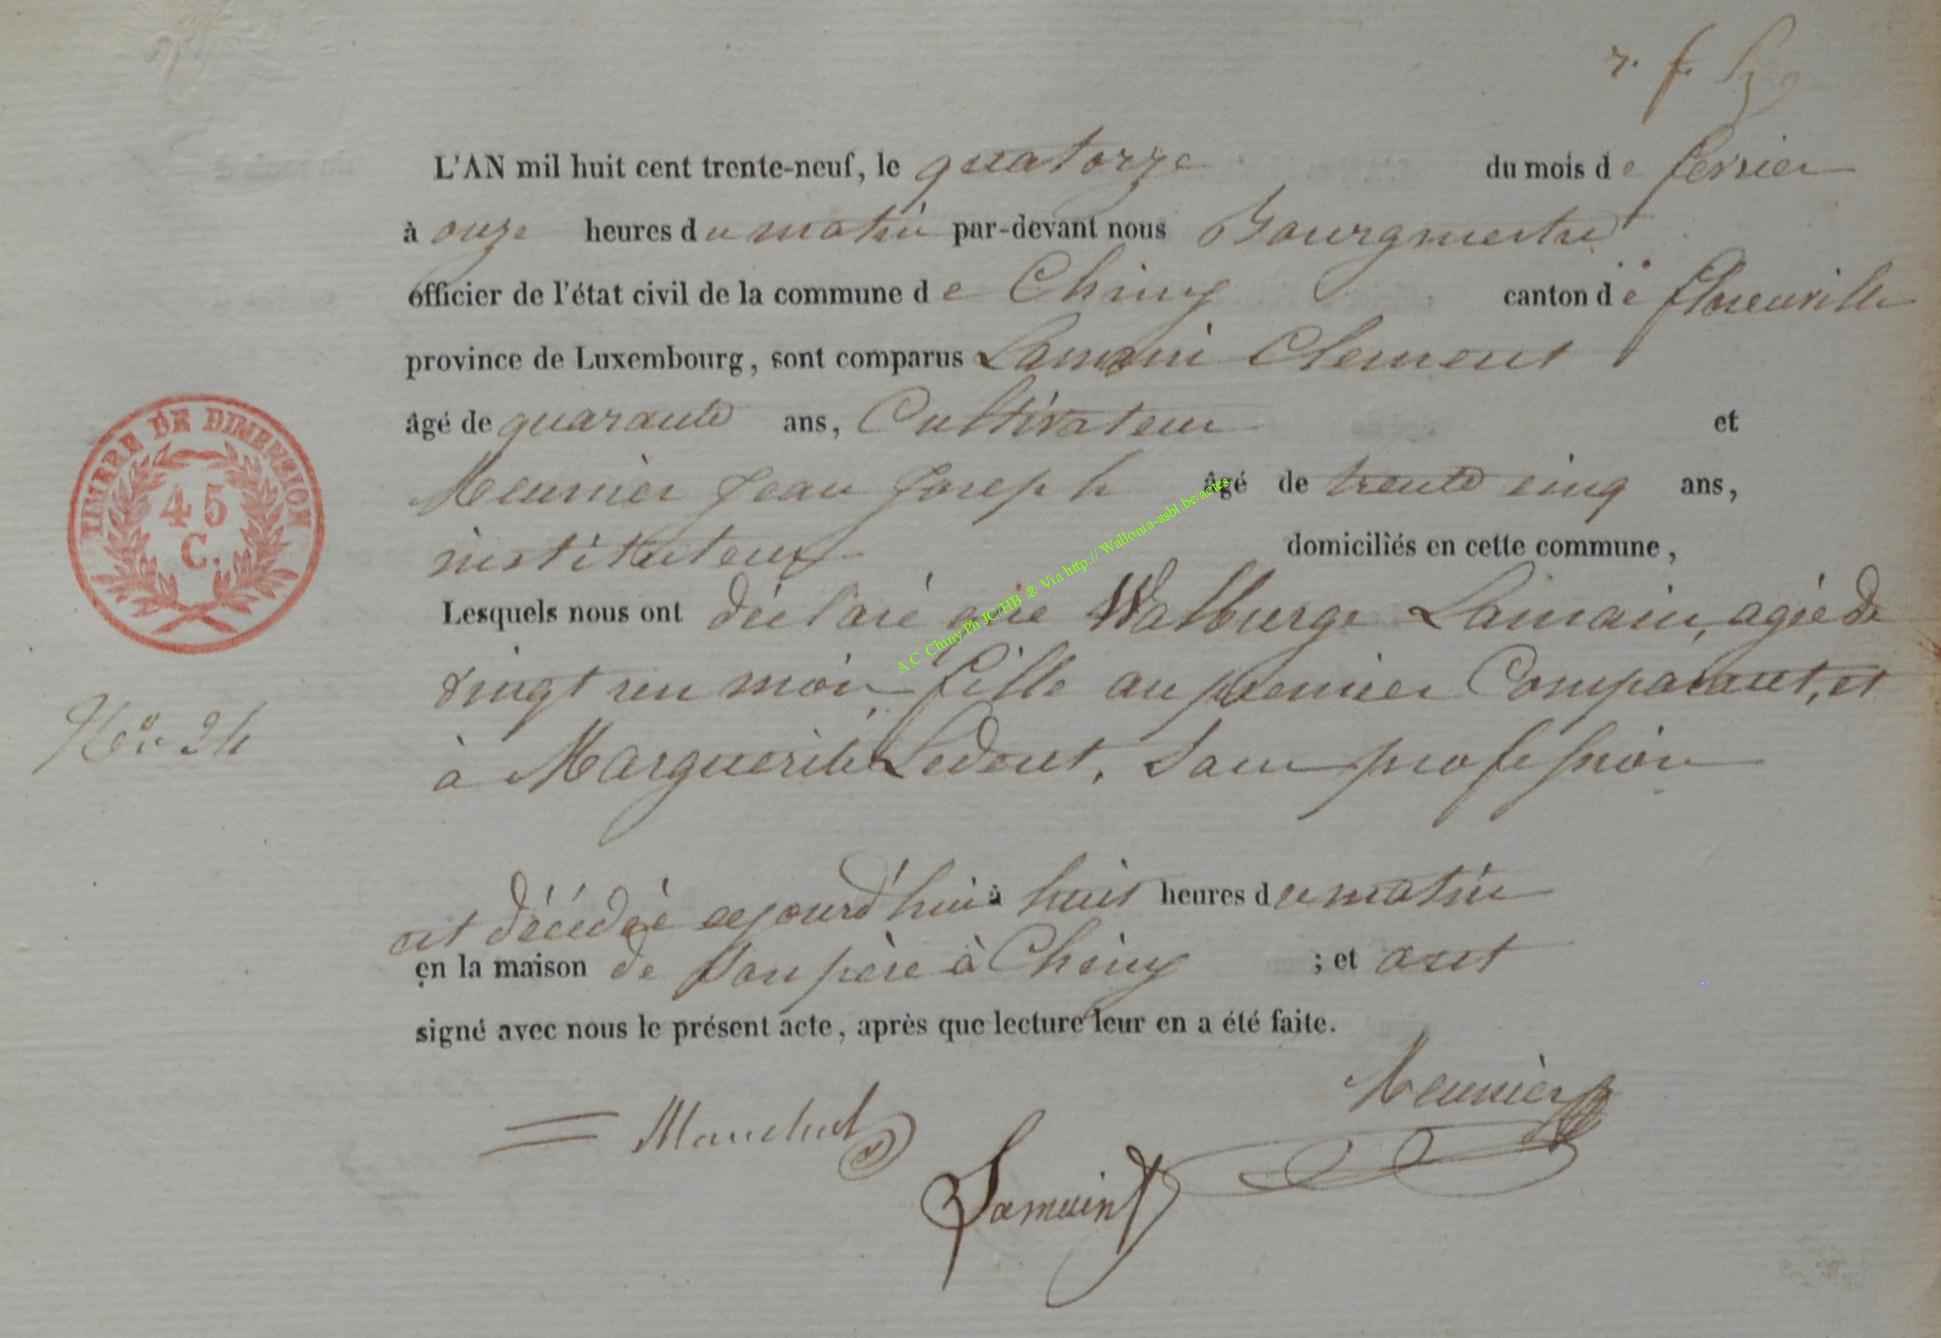 r. f. 
L'AN mil huit cent trente-neuf, le quatorze du mois de fevrier
à onze heures du matin par-devant nous Bourgmestre
officier de l'état civil de la commune de Chiny canton de florenville
province de Luxembourg, sont comparus Lamain Clement
âgé de quarante ans, Cultivateur et
Meunier Jean Joseph âgé de trente cinq ans,
instituteur domiciliés en cette commune,
Lesquels nous ont déclaré que Walburge Lamain, agée de
vingt un mois fille au premier Comparant, et
à Marguerite Ledent, Sans profession
est décédée aujourd'hui à huit heures du matin
en la maison de Son père à Chiny ; et ont
signé avec nous le présent acte, après que lecture leur en a été faite.
Meunièr
Manchul
Lamain
TIMBRE DE DIMENSION
45
C.
No. 24
A.C. Chiny Ph JC/HB ® Via http:// Wallonia-asbl.be/actes